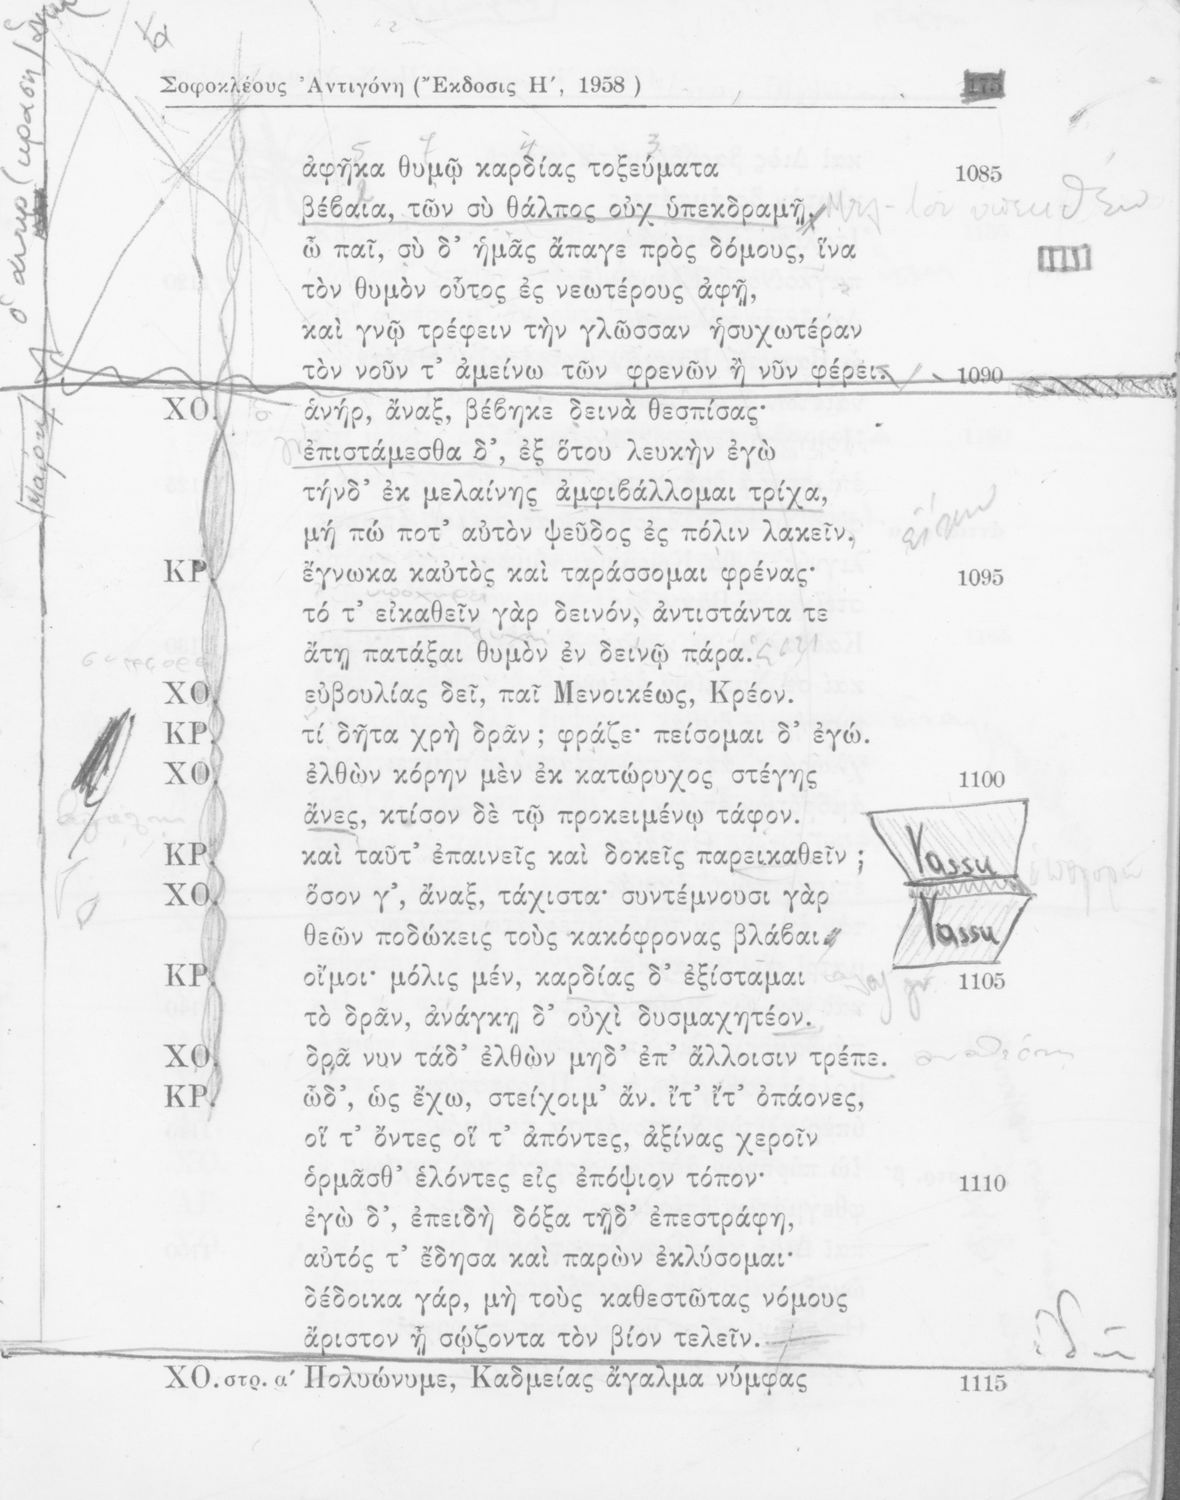 Σοφοκλέους Ἀντιγόνη (Ἔκδοσις Η′, 1958) 175
ἀφῆκα θυμῷ καρδίας τοξεύματα 1085
βέβαια, τῶν σὺ θάλπος οὐχ ὑπεκδραμῇ.
ὦ παῖ, σὺ δ' ἡμᾶς ἄπαγε πρὸς δόμους, ἵνα
τὸν θυμὸν οὗτος ἐς νεωτέρους ἀφῇ,
καὶ γνῷ τρέφειν τὴν γλῶσσαν ἡσυχωτέραν
τὸν νοῦν τ' ἀμείνω τῶν φρενῶν ἢ νῦν φέρει. 1090
ΧΟ. ἁνήρ, ἄναξ, βέβηκε δεινὰ θεσπίσας·
ἐπιστάμεσθα δ', ἐξ ὅτου λευκὴν ἐγὼ
τήνδ' ἐκ μελαίνης ἀμφιβάλλομαι τρίχα,
μή πώ ποτ' αὐτὸν ψεῦδος ἐς πόλιν λακεῖν.
ΚΡ. ἔγνωκα καὐτὸς καὶ ταράσσομαι φρένας· 1095
τό τ' εἰκαθεῖν γὰρ δεινόν, ἀντιστάντα τε
ἄτῃ πατάξαι θυμὸν ἐν δεινῷ πάρα.
ΧΟ. εὐβουλίας δεῖ, παῖ Μενοικέως, Κρέον.
ΚΡ. τί δῆτα χρὴ δρᾶν; φράζε· πείσομαι δ' ἐγώ.
ΧΟ. ἐλθὼν κόρην μὲν ἐκ κατώρυχος στέγης 1100
ἄνες, κτίσον δὲ τῷ προκειμένῳ τάφον.
ΚΡ. καὶ ταῦτ' ἐπαινεῖς καὶ δοκεῖς παρεικαθεῖν;
Yassu
ΧΟ. ὅσον γ', ἄναξ, τάχιστα· συντέμνουσι γὰρ
θεῶν ποδώκεις τοὺς κακόφρονας βλάβαι.
Yassu
ΚΡ. οἴμοι· μόλις μέν, καρδίας δ' ἐξίσταμαι 1105
τὸ δρᾶν, ἀνάγκῃ δ' οὐχὶ δυσμαχητέον.
ΧΟ. δρᾶ νυν τάδ' ἐλθὼν μηδ' ἐπ' ἄλλοισιν τρέπε.
ΚΡ. ὧδ', ὡς ἔχω, στείχοιμ' ἄν. ἴτ' ἴτ' ὀπάονες,
οἵ τ' ὄντες οἵ τ' ἀπόντες, ἀξίνας χεροῖν
ὁρμᾶσθ' ἑλόντες εἰς ἐπόψιον τόπον· 1110
ἐγὼ δ', ἐπειδὴ δόξα τῇδ' ἐπεστράφη,
αὐτός τ' ἔδησα καὶ παρὼν ἐκλύσομαι·
δέδοικα γάρ, μὴ τοὺς καθεστῶτας νόμους
ἄριστον ᾖ σῴζοντα τὸν βίον τελεῖν.
ΧΟ. στρ. α′ Πολυώνυμε, Καδμείας ἄγαλμα νύμφας 1115